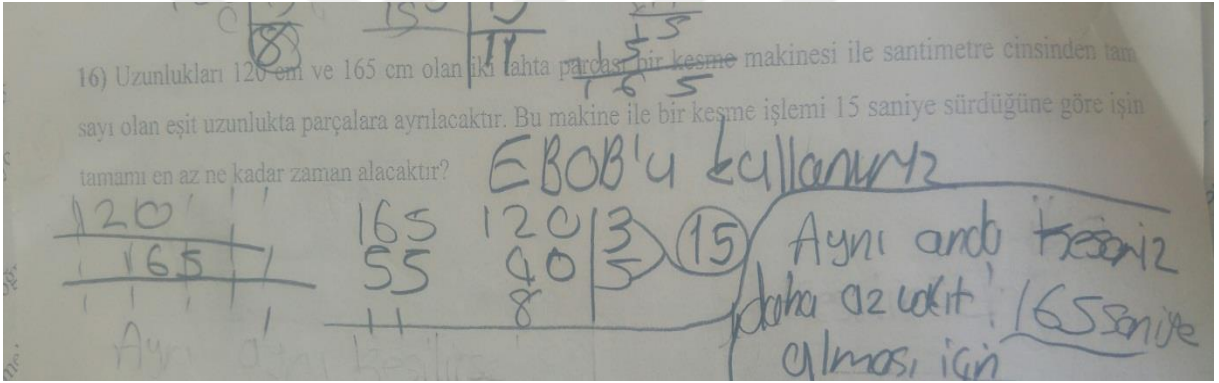 8 15 11 15
16) Uzunlukları 120 cm ve 165 cm olan iki tahta parçası bir kesme makinesi ile santimetre cinsinden tam
165
sayı olan eşit uzunlukta parçalara ayrılacaktır. Bu makine ile bir kesme işlemi 15 saniye sürdüğüne göre işin
tamamı en az ne kadar zaman alacaktır? EBOB'u kullanırız
120 165 120 3 15 Aynı anda keseriz
165 55 40 5 daha az vakit 165 saniye
11 8 alması için
Aynı